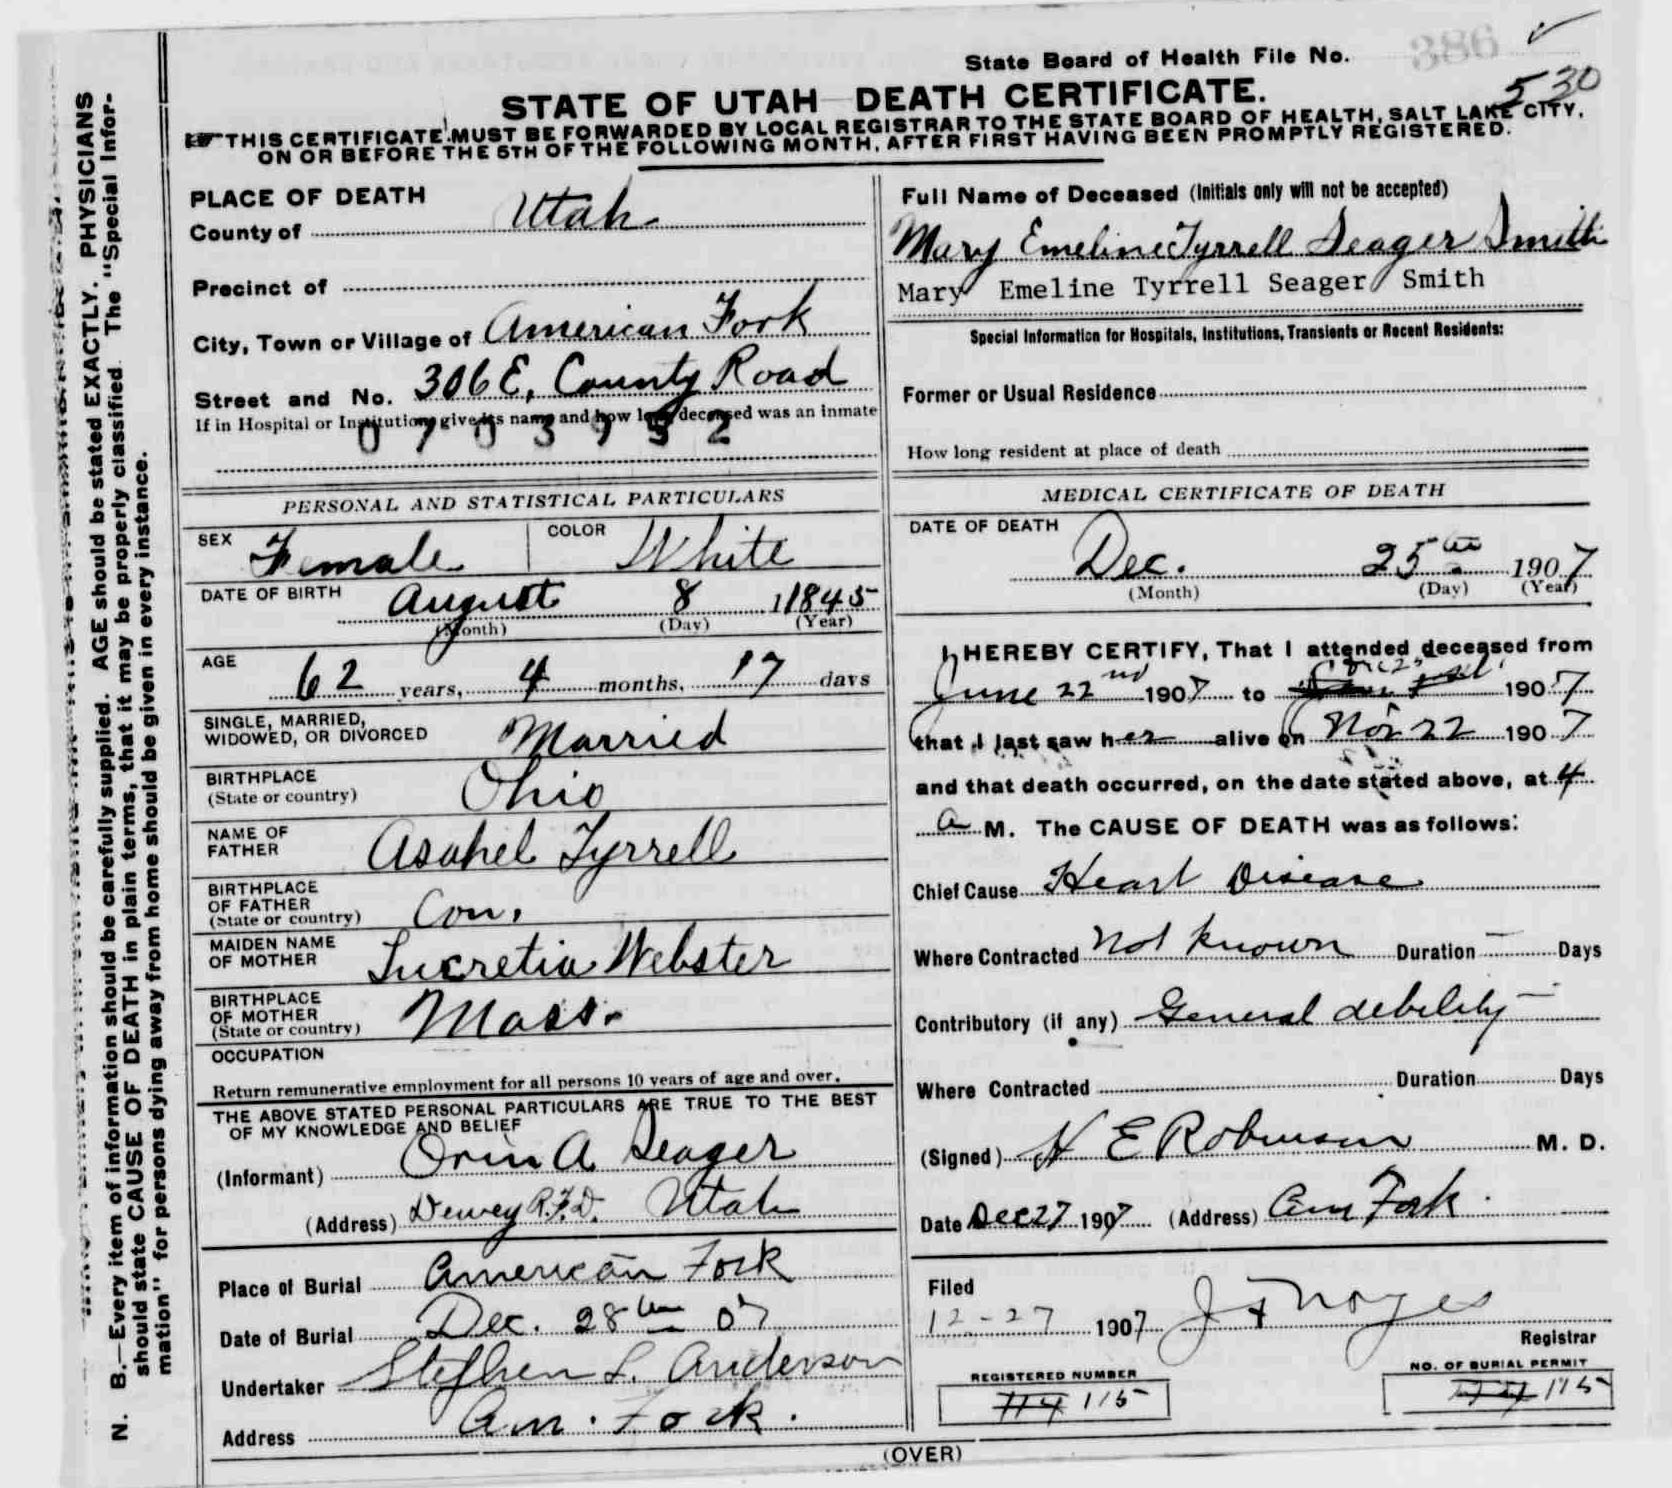 386
State Board of Health File No.
530
STATE OF UTAH DEATH CERTIFICATE.
THIS CERTIFICATE MUST BE FORWARDED BY LOCAL REGISTRAR TO THE STATE BOARD OF HEALTH, SALT LAKE CITY,
ON OR BEFORE THE 5TH OF THE FOLLOWING MONTH, AFTER FIRST HAVING BEEN PROMPTLY REGISTERED.
N. B.—Every item of information should be carefully supplied. AGE should be stated EXACTLY. PHYSICIANS
should state CAUSE OF DEATH in plain terms, that it may be properly classified. The "Special Infor-
mation" for persons dying away from home should be given in every instance.
PLACE OF DEATH
County of Utah
Precinct of
City, Town or Village of American Fork
Street and No. 306 E. County Road
If in Hospital or Institution, give its name and how long deceased was an inmate
0703952
PERSONAL AND STATISTICAL PARTICULARS
SEX Female COLOR White
DATE OF BIRTH August 8 1845
(Month) (Day) (Year)
AGE 62 years, 4 months, 17 days
SINGLE, MARRIED,
WIDOWED, OR DIVORCED Married
BIRTHPLACE
(State or country) Ohio
NAME OF
FATHER Asahel Tyrrell
BIRTHPLACE
OF FATHER
(State or country) Con.
MAIDEN NAME
OF MOTHER Lucretia Webster
BIRTHPLACE
OF MOTHER
(State or country) Mass.
OCCUPATION
Return remunerative employment for all persons 10 years of age and over.
THE ABOVE STATED PERSONAL PARTICULARS ARE TRUE TO THE BEST
OF MY KNOWLEDGE AND BELIEF
(Informant) Orin A Seager
(Address) Dewey R.F.D. Utah
Place of Burial American Fork
Date of Burial Dec. 28th 07
Undertaker Stephen L. Anderson
Address Am. Fork.
Full Name of Deceased (Initials only will not be accepted)
Mary Emeline Tyrrell Seager Smith
Mary Emeline Tyrrell Seager Smith
Special Information for Hospitals, Institutions, Transients or Recent Residents:
Former or Usual Residence
How long resident at place of death
MEDICAL CERTIFICATE OF DEATH
DATE OF DEATH
Dec. 25th 1907
(Month) (Day) (Year)
I HEREBY CERTIFY, That I attended deceased from
June 22nd 1907 to 1907
that I last saw her alive on Nov 22 1907
and that death occurred, on the date stated above, at 4
a M. The CAUSE OF DEATH was as follows:
Chief Cause Heart Disease
Where Contracted Not known Duration — Days
Contributory (if any) General debility
Where Contracted Duration Days
(Signed) H E Robinson M. D.
Date Dec 27 1907 (Address) Am Fork.
Filed
12-27 1907 J F Noyes
Registrar
REGISTERED NUMBER
114 115
NO. OF BURIAL PERMIT
114 115
(OVER)